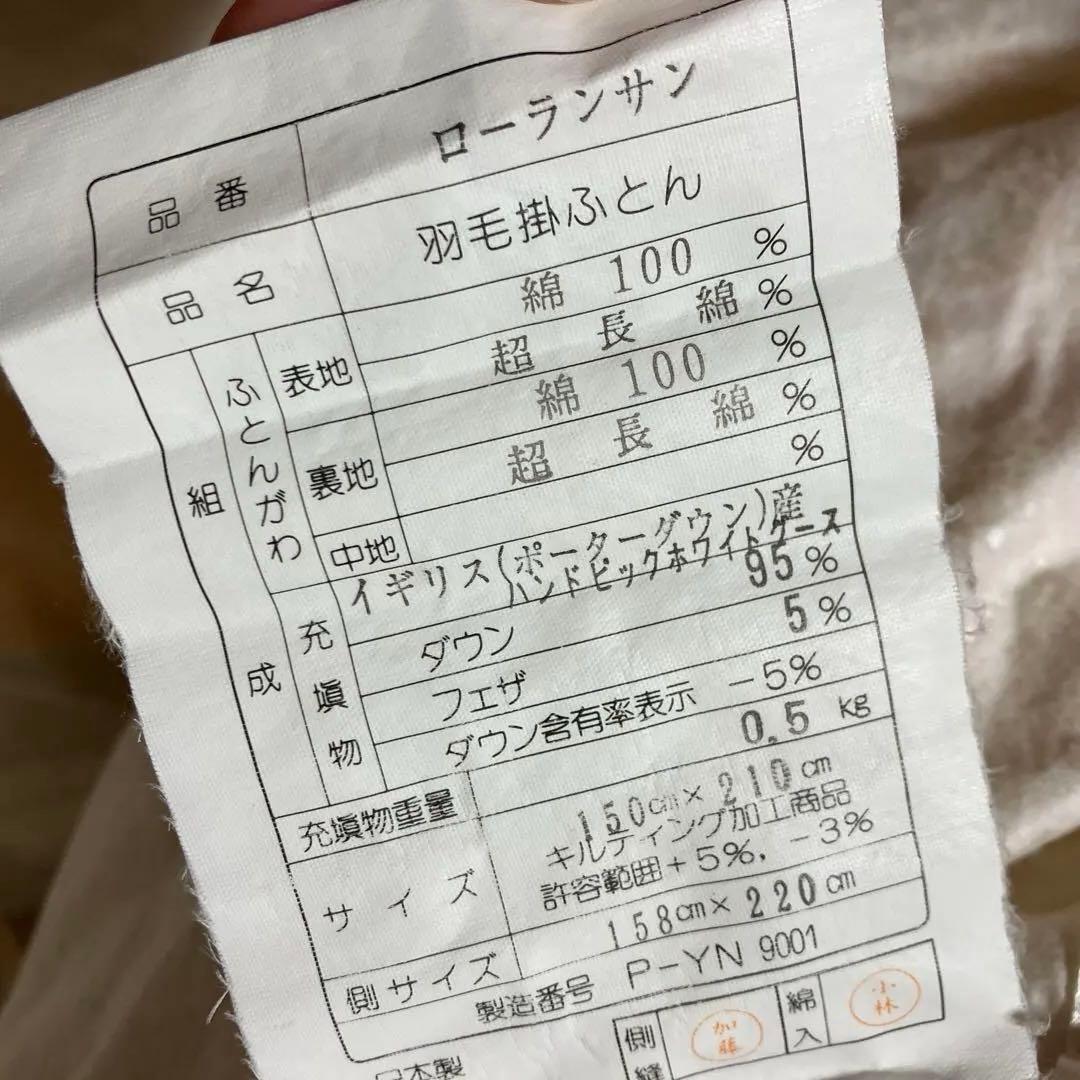 品番 ローランサン
品名 羽毛掛ふとん
組成 ふとんがわ 表地 綿 100 %
超長綿 %
裏地 綿 100 %
超長綿 %
中地 %
充填物 イギリス(ポーターダウン)産
ハンドピックホワイトグース
ダウン 95%
フェザ 5%
ダウン含有率表示 -5%
充填物重量 0.5 kg
サイズ 150cm×210cm
キルティング加工商品
許容範囲+5%, -3%
側サイズ 158cm×220cm
製造番号 P-YN 9001
側縫 加藤 綿入 小林
日本製